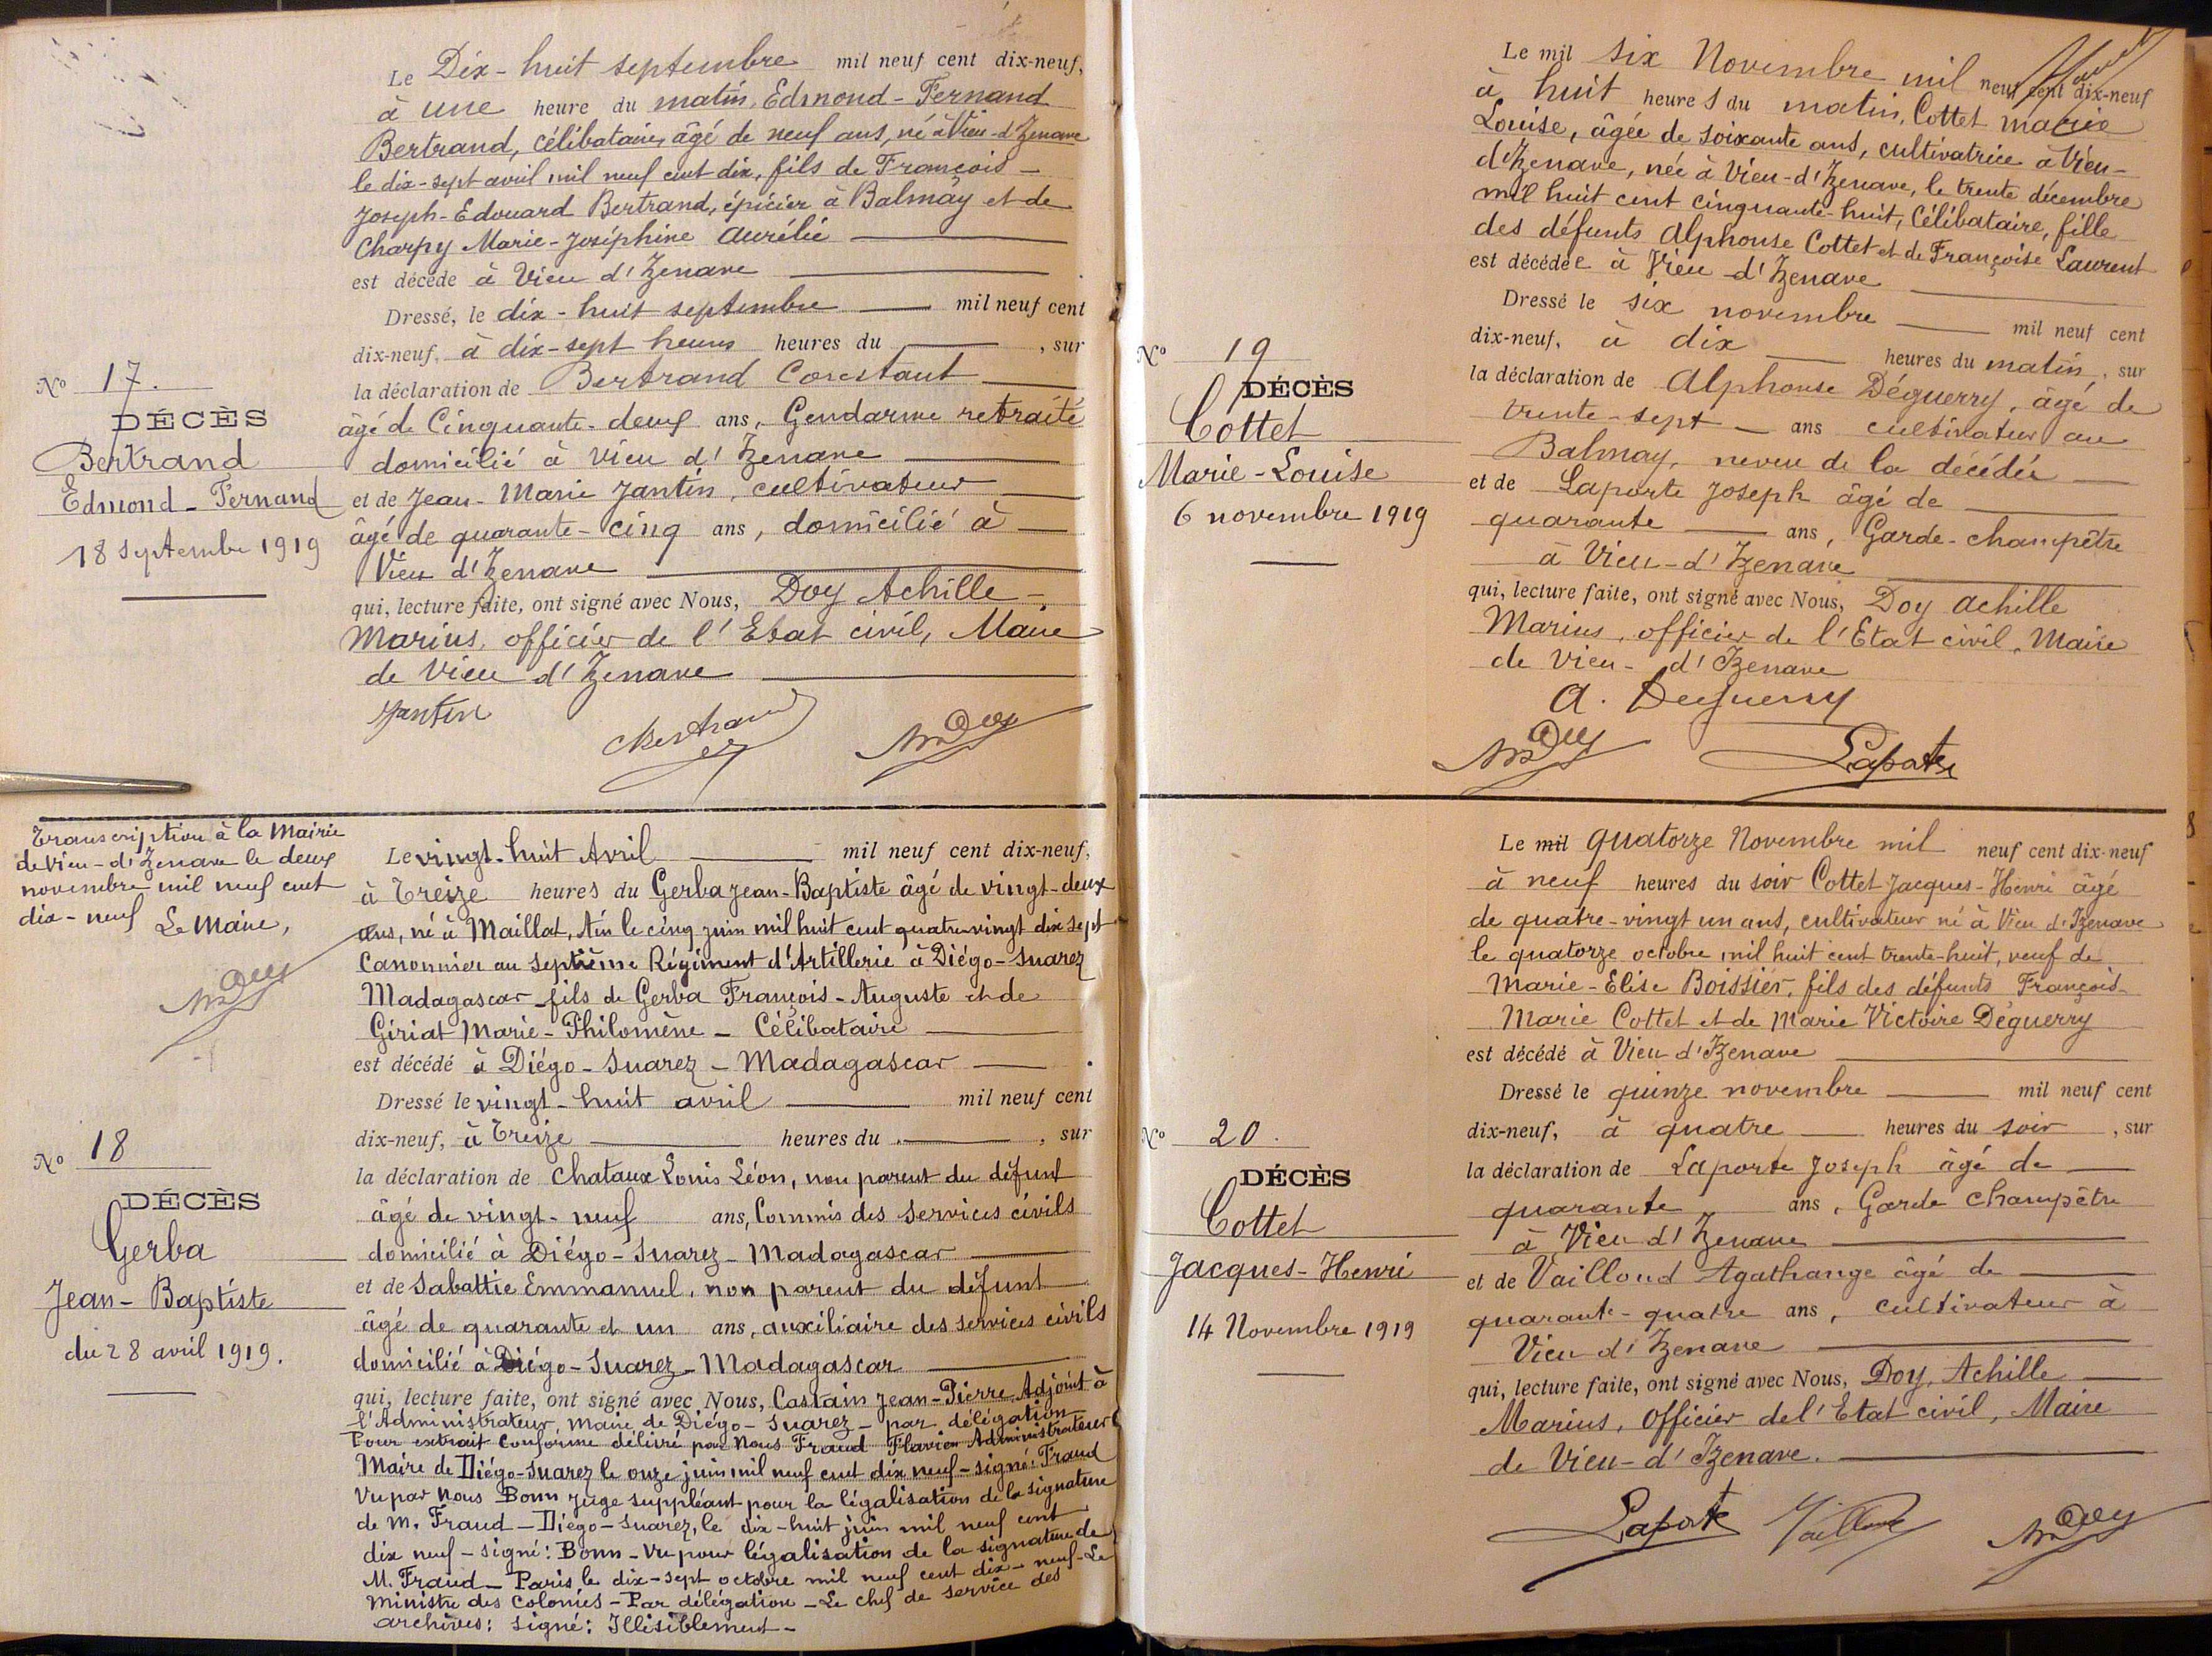 Le Dix-huit septembre mil neuf cent dix-neuf,
à une heure du matin, Edmond-Fernand
Bertrand, célibataire, âgé de neuf ans, né à Vieu-d'Izenave
le dix-sept avril mil neuf cent dix, fils de François-
Joseph-Edouard Bertrand, épicier à Balmay et de
Charpy Marie-Joséphine Aurélie
est décédé à Vieu d'Izenave
Dressé, le dix-huit septembre mil neuf cent
dix-neuf, à dix-sept heures heures du , sur
la déclaration de Bertrand Constant
âgé de Cinquante-deux ans, Gendarme retraité
domicilié à Vieu d'Izenave
et de Jean-Marie Jantin, cultivateur
âgé de quarante-cinq ans, domicilié à
Vieu d'Izenave
qui, lecture faite, ont signé avec Nous, Doy Achille-
Marius, officier de l'Etat civil, Maire
de Vieu d'Izenave
Jantin
CBertrand
AmDoy
N° 17.
DÉCÈS
Bertrand
Edmond-Fernand
18 Septembre 1919
Transcription à la Mairie
de Vieu-d'Izenave le deux
novembre mil neuf cent
dix-neuf Le Maire,
AmDoy
N° 18
DÉCÈS
Gerba
Jean-Baptiste
du 28 avril 1919.
Le vingt-huit Avril mil neuf cent dix-neuf,
à Treize heures du Gerba Jean-Baptiste âgé de vingt-deux
ans, né à Maillat, Ain le cinq juin mil huit cent quatre-vingt dix sept
Canonnier au Septième Régiment d'Artillerie à Diégo-Suarez
Madagascar - fils de Gerba François-Auguste et de
Giriat Marie-Philomène - Célibataire
est décédé à Diégo-Suarez - Madagascar
Dressé le vingt-huit avril mil neuf cent
dix-neuf, à Treize heures du , sur
la déclaration de Chataux Louis Léon, non parent du défunt
âgé de vingt-neuf ans, Commis des Services civils
domicilié à Diégo-Suarez - Madagascar
et de Sabattie Emmanuel, non parent du défunt
âgé de quarante et un ans, auxiliaire des services civils
domicilié à Diégo-Suarez - Madagascar
qui, lecture faite, ont signé avec Nous, Castain Jean-Pierre Adjoint à
l'Administrateur Maire de Diégo-Suarez - par délégation
Pour extrait conforme délivré par Nous Fraud Flavien Administrateur
Maire de Diégo-Suarez le onze juin mil neuf cent dix neuf - signé: Fraud
Vu par Nous Bonn Juge suppléant pour la légalisation de la signature
de M. Fraud - Diégo-Suarez, le dix-huit juin mil neuf cent
dix neuf - signé: Bonn - Vu pour légalisation de la signature de
M. Fraud - Paris le dix-sept octobre mil neuf cent dix-neuf - Le
Ministre des Colonies - Par délégation - Le chef de service des
archives: signé: Illisiblement -
Le mil six Novembre mil neuf cent dix-neuf
à huit heures du matin, Cottet Marie
Louise, âgée de soixante ans, cultivatrice à Vieu-
d'Izenave, née à Vieu-d'Izenave, le trente décembre
mil huit cent cinquante-huit, Célibataire, fille
des défunts Alphonse Cottet et de Françoise Laurent
est décédée à Vieu-d'Izenave
Dressé le six novembre mil neuf cent
dix-neuf, à dix heures du matin, sur
la déclaration de Alphonse Déguerry, âgé de
trente-sept ans cultivateur au
Balmay, neveu de la décédée
et de Laporte Joseph âgé de
quarante ans, Garde-champêtre
à Vieu-d'Izenave
qui, lecture faite, ont signé avec Nous, Doy Achille
Marius, officier de l'Etat civil, Maire
de Vieu-d'Izenave
A. Deguerry
AmDoy
Laporte
N° 19
DÉCÈS
Cottet
Marie-Louise
6 novembre 1919
Le mil quatorze Novembre mil neuf cent dix-neuf
à neuf heures du soir Cottet Jacques-Henri âgé
de quatre-vingt un ans, cultivateur né à Vieu d'Izenave
le quatorze octobre mil huit cent trente-huit, veuf de
Marie-Elise Boissier, fils des défunts François-
Marie Cottet et de Marie Victoire Déguerry
est décédé à Vieu d'Izenave
Dressé le quinze novembre mil neuf cent
dix-neuf, à quatre heures du soir, sur
la déclaration de Laporte Joseph âgé de
quarante ans, Garde Champêtre
à Vieu d'Izenave
et de Vailloud Agathange âgé de
quarante-quatre ans, cultivateur à
Vieu d'Izenave
qui, lecture faite, ont signé avec Nous, Doy, Achille
Marius, Officier de l'Etat civil, Maire
de Vieu-d'Izenave.
Laporte
Vailloud
AmDoy
N° 20.
DÉCÈS
Cottet
Jacques-Henri
14 Novembre 1919